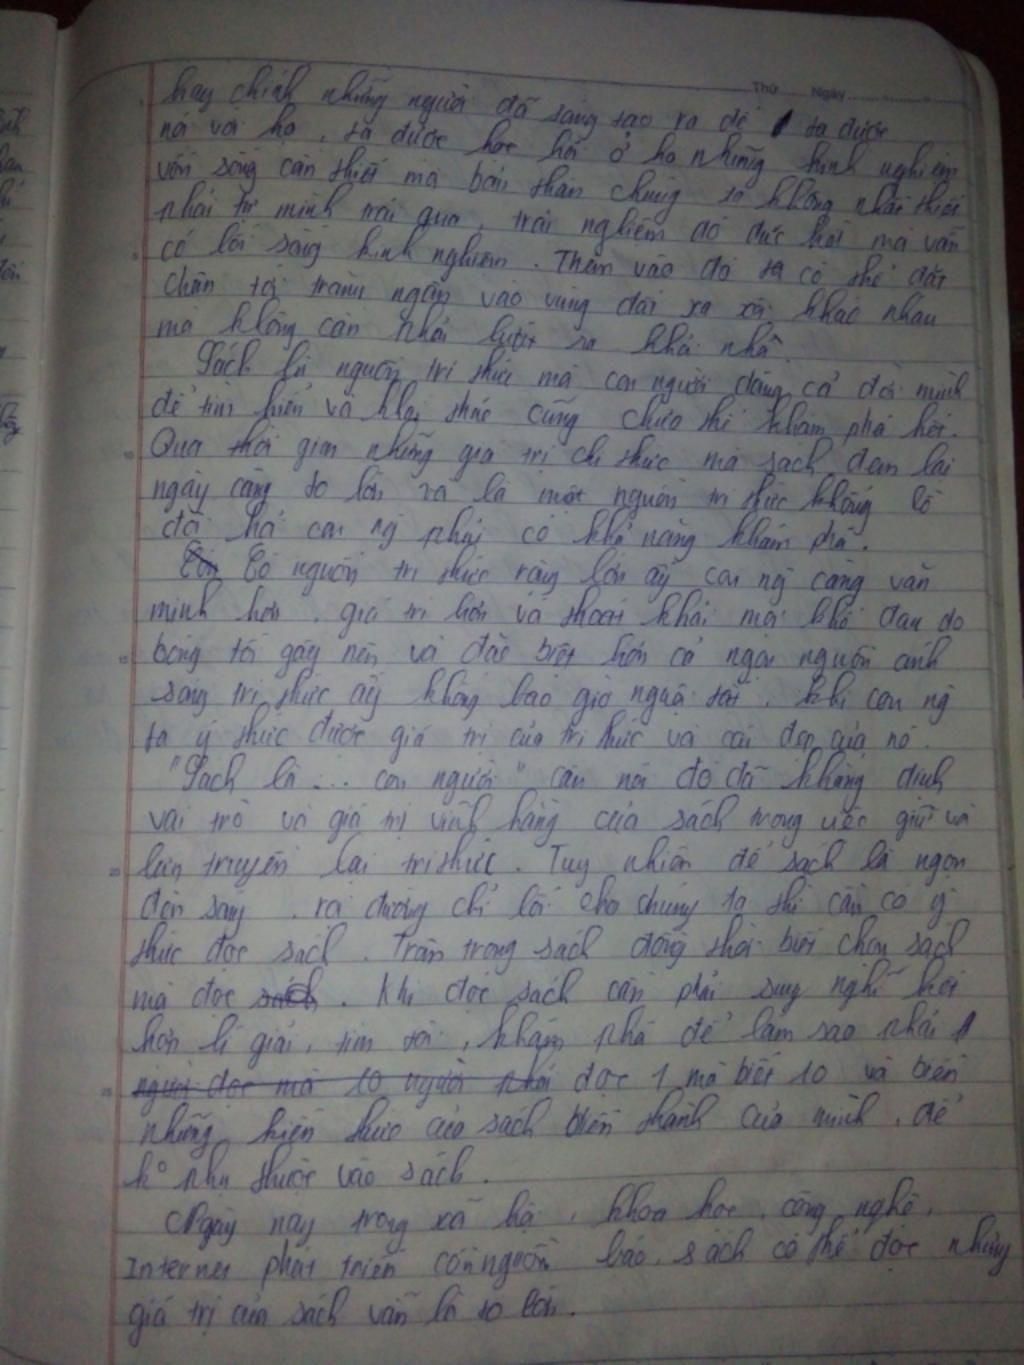 Thứ Ngày
hay chính những người đã sáng tạo ra để ta được
nói với họ, ta được học hỏi ở họ những kinh nghiệm
vốn sống cần thiết mà bản thân chúng ta không nhất thiết
phải tự mình trải qua, trải nghiệm đó đúc kết mà vẫn
có lối sống kinh nghiệm. Thêm vào đó ta có thể đặt
chân tới trăm ngàn vào vùng đất xa xôi khác nhau
mà không cần phải bước ra khỏi nhà.
Sách là nguồn tri thức mà con người dùng cả đời mình
để tìm hiểu và khai thác cũng chưa thể khám phá hết.
Qua thời gian những giá trị chi thức mà sách đem lại
ngày càng to lớn và là một nguồn tri thức khổng lồ
đòi hỏi con ng phải có khả năng khám phá.
Có nguồn tri thức rộng lớn ấy con ng càng văn
minh hơn, giá trị hơn và thoát khỏi mọi khổ đau do
bóng tối gây nên và đặc biệt hơn cả ngọn nguồn ánh
sáng tri thức ấy không bao giờ nguội tắt, khi con ng
ta ý thức được giá trị của tri thức và cái đẹp của nó.
"Sách là ... con người" câu nói đó đã khẳng định
vai trò và giá trị vĩnh hằng của sách trong việc giữ và
lưu truyền lại tri thức. Tuy nhiên để sách là ngọn
đèn sáng, rọi đường chỉ lối cho chúng ta thì cần có ý
thức đọc sách. Trân trọng sách đồng thời biết chọn sách
mà đọc sách. Khi đọc sách cần phải suy nghĩ kết
hợp lí giải, tìm tòi, khám phá để làm sao phải
người đọc mà 10 người phải đọc 1 mà biết 10 và biến
những kiến thức của sách biến thành của mình, để
k° phụ thuộc vào sách.
Ngày nay trong xã hội, khoa học, công nghệ,
Internet phát triển còn nguồn báo, sách có thể đọc nhưng
giá trị của sách vẫn là to lớn.